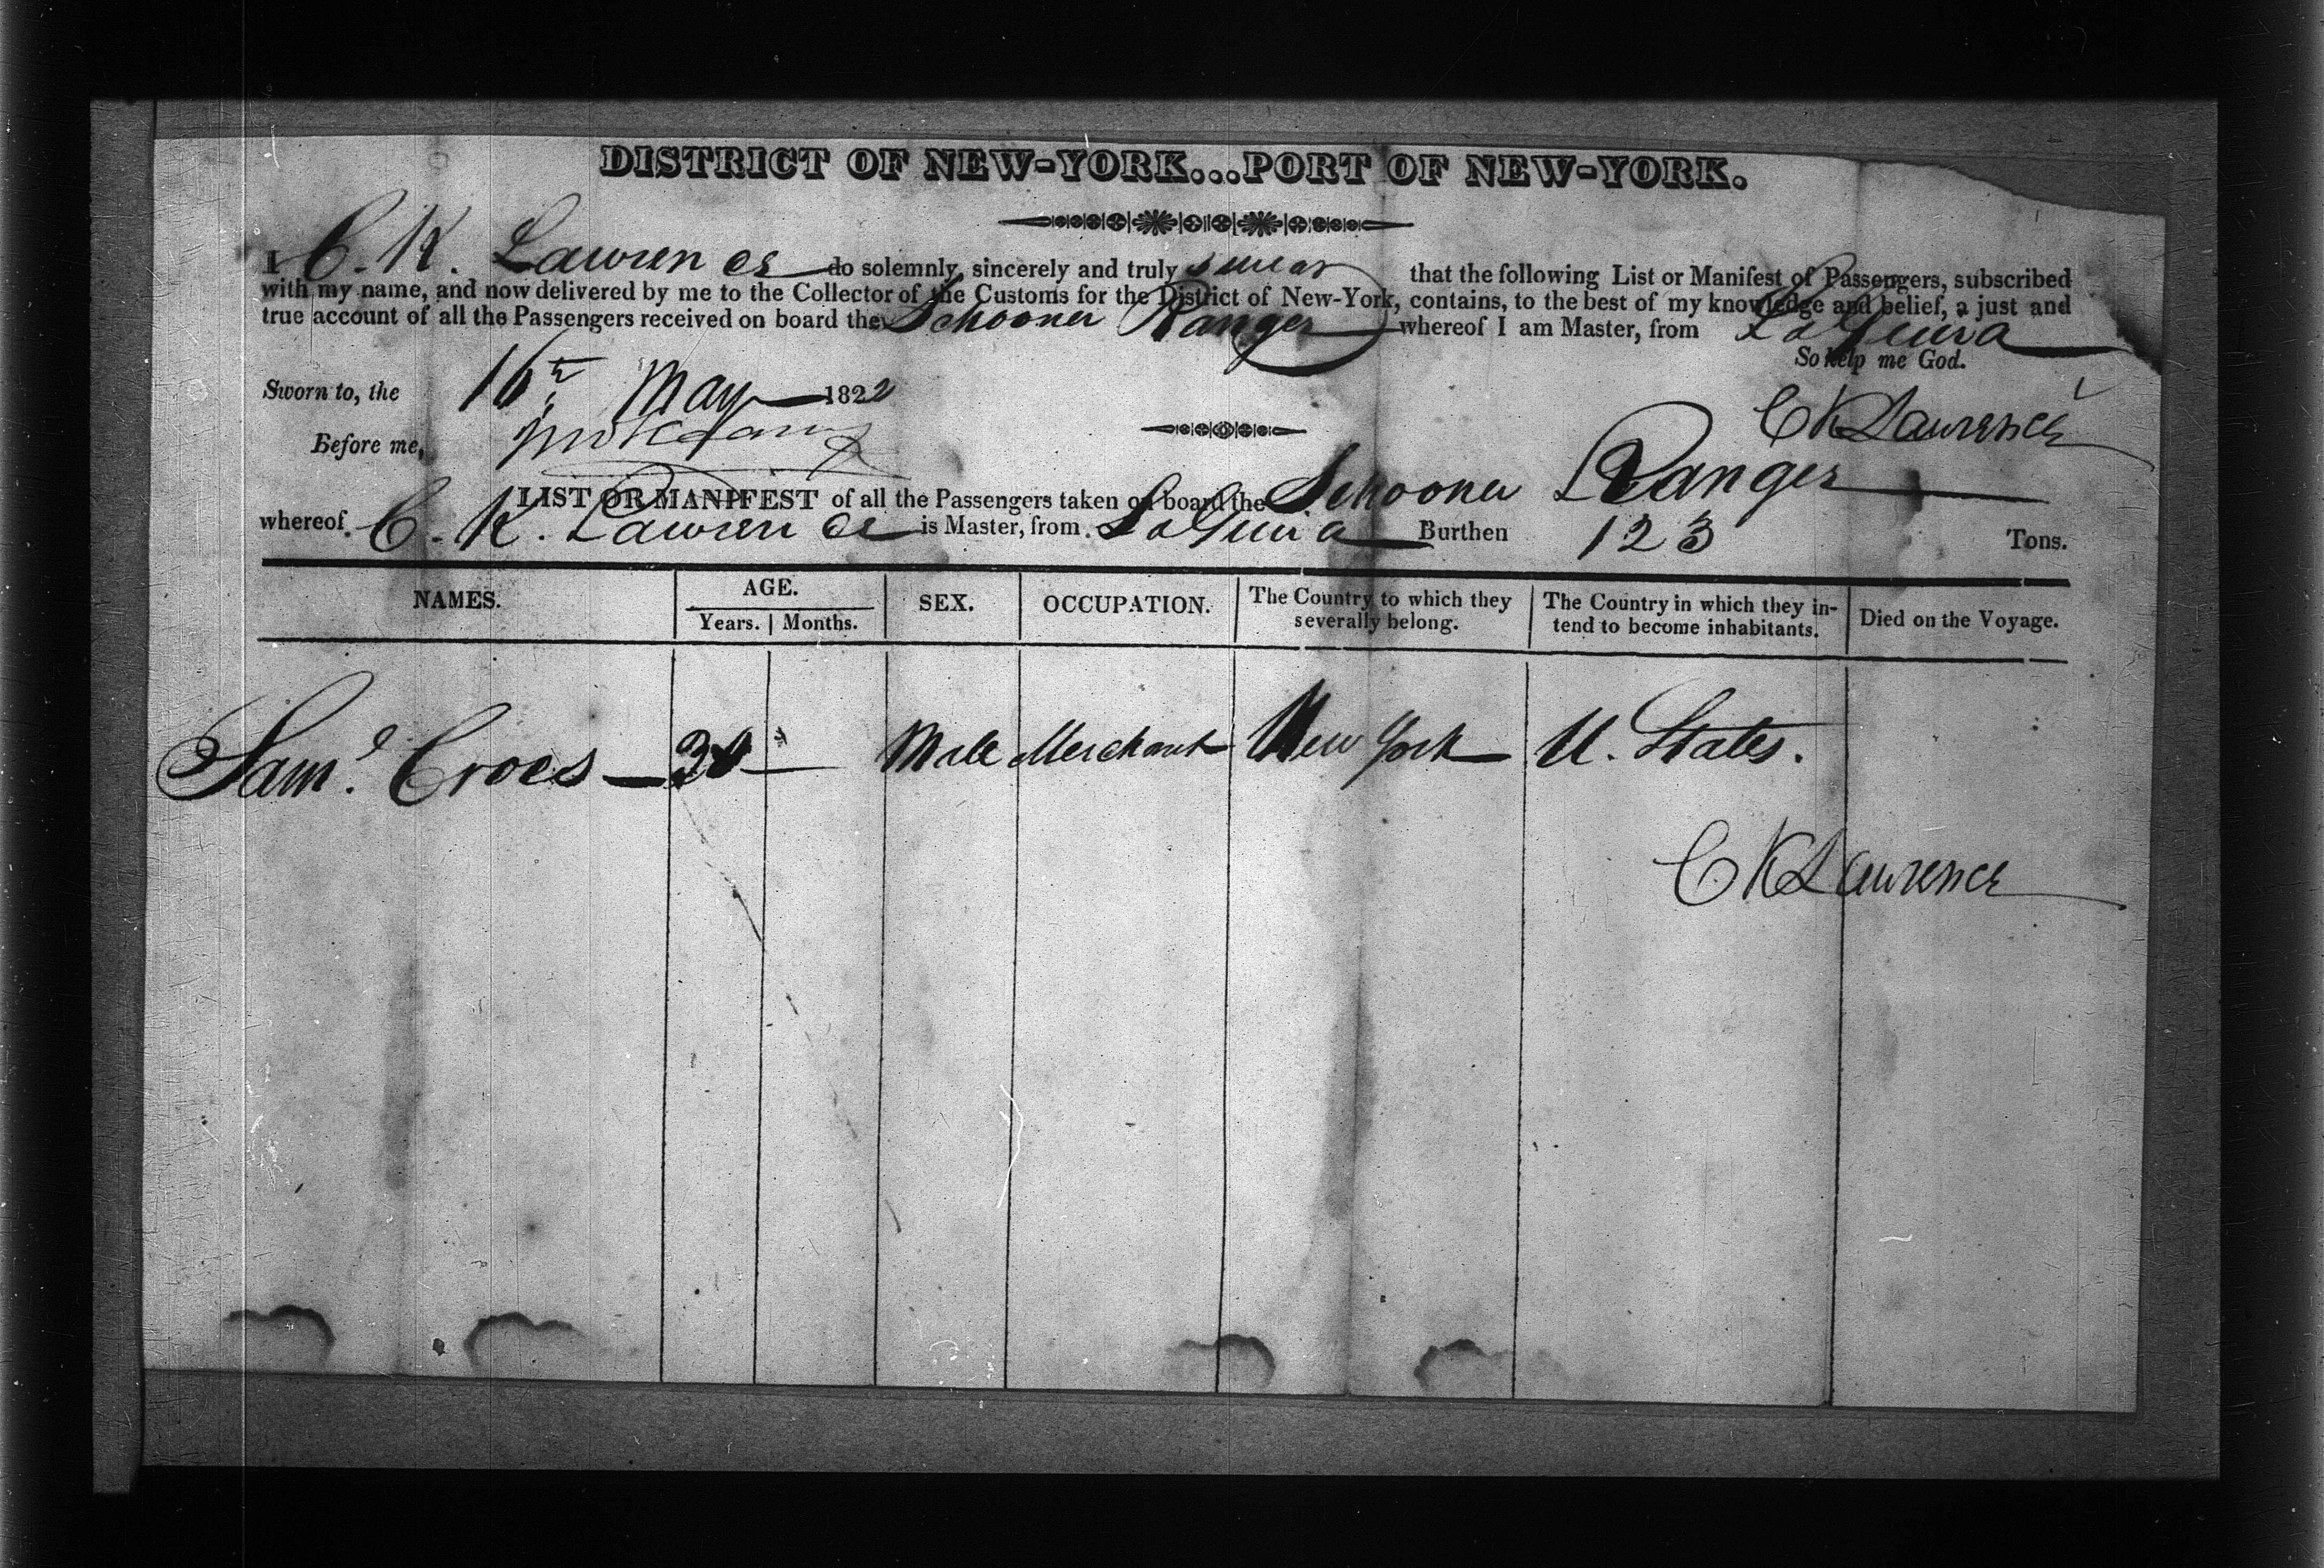 DISTRICT OF NEW-YORK...PORT OF NEW-YORK.
I C. K. Lawrence do solemnly, sincerely and truly swear that the following List or Manifest of Passengers, subscribed
with my name, and now delivered by me to the Collector of the Customs for the District of New-York, contains, to the best of my knowledge and belief, a just and
true account of all the Passengers received on board the Schooner Ranger whereof I am Master, from LaGuira
So help me God.
Sworn to, the 16th May 1822
C K Lawrence
Before me,
LIST OR MANIFEST of all the Passengers taken on board the Schooner Ranger
whereof C. K. Lawrence is Master, from LaGuira Burthen 123 Tons.
NAMES. AGE. Years. Months. SEX. OCCUPATION. The Country to which they severally belong. The Country in which they in-tend to become inhabitants. Died on the Voyage.
Saml. Croes Male Merchant New York U. States.
C K Lawrence